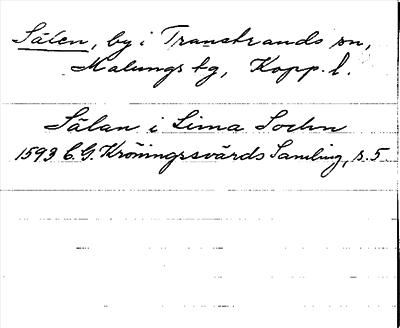 Sälen, by i Transtrands sn,
Malungs tg, Kopp. l.
Sälan i Lima Sochn
1593 C.G. Kröningssvärds Samling, s. 5